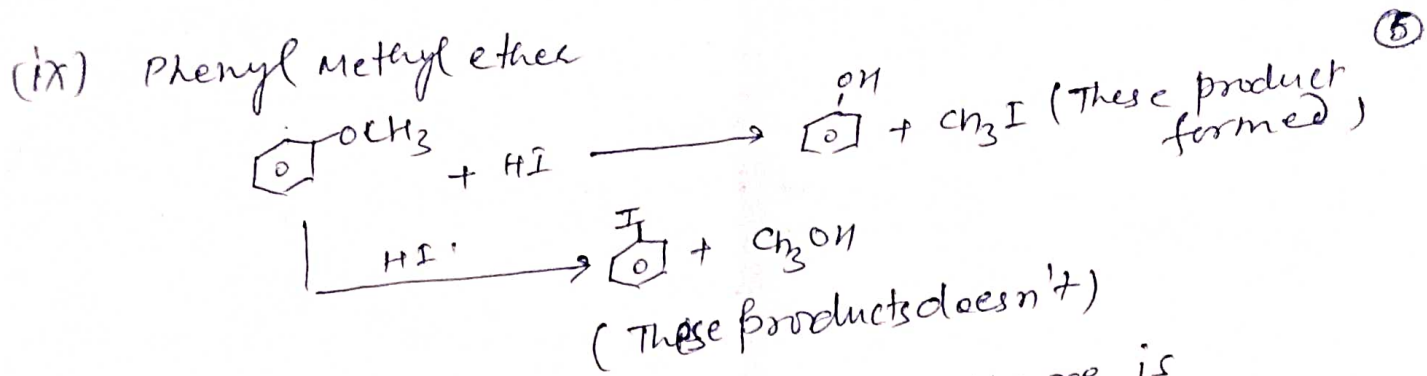 ⑤
(ix) Phenyl Methyl ether
OCH3 + HI → OH + CH3I (These product formed)
HI. → I + CH3OH
(These products doesn't)
is